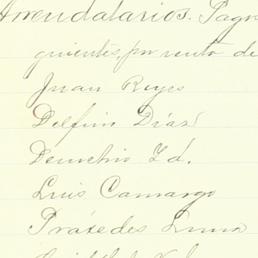 Arrendatarios. Pagar
guientes, por renta de
Juan Reyes
Delfin Diaz
Demetrio Id.
Luis Camargo
Práxedes Luna